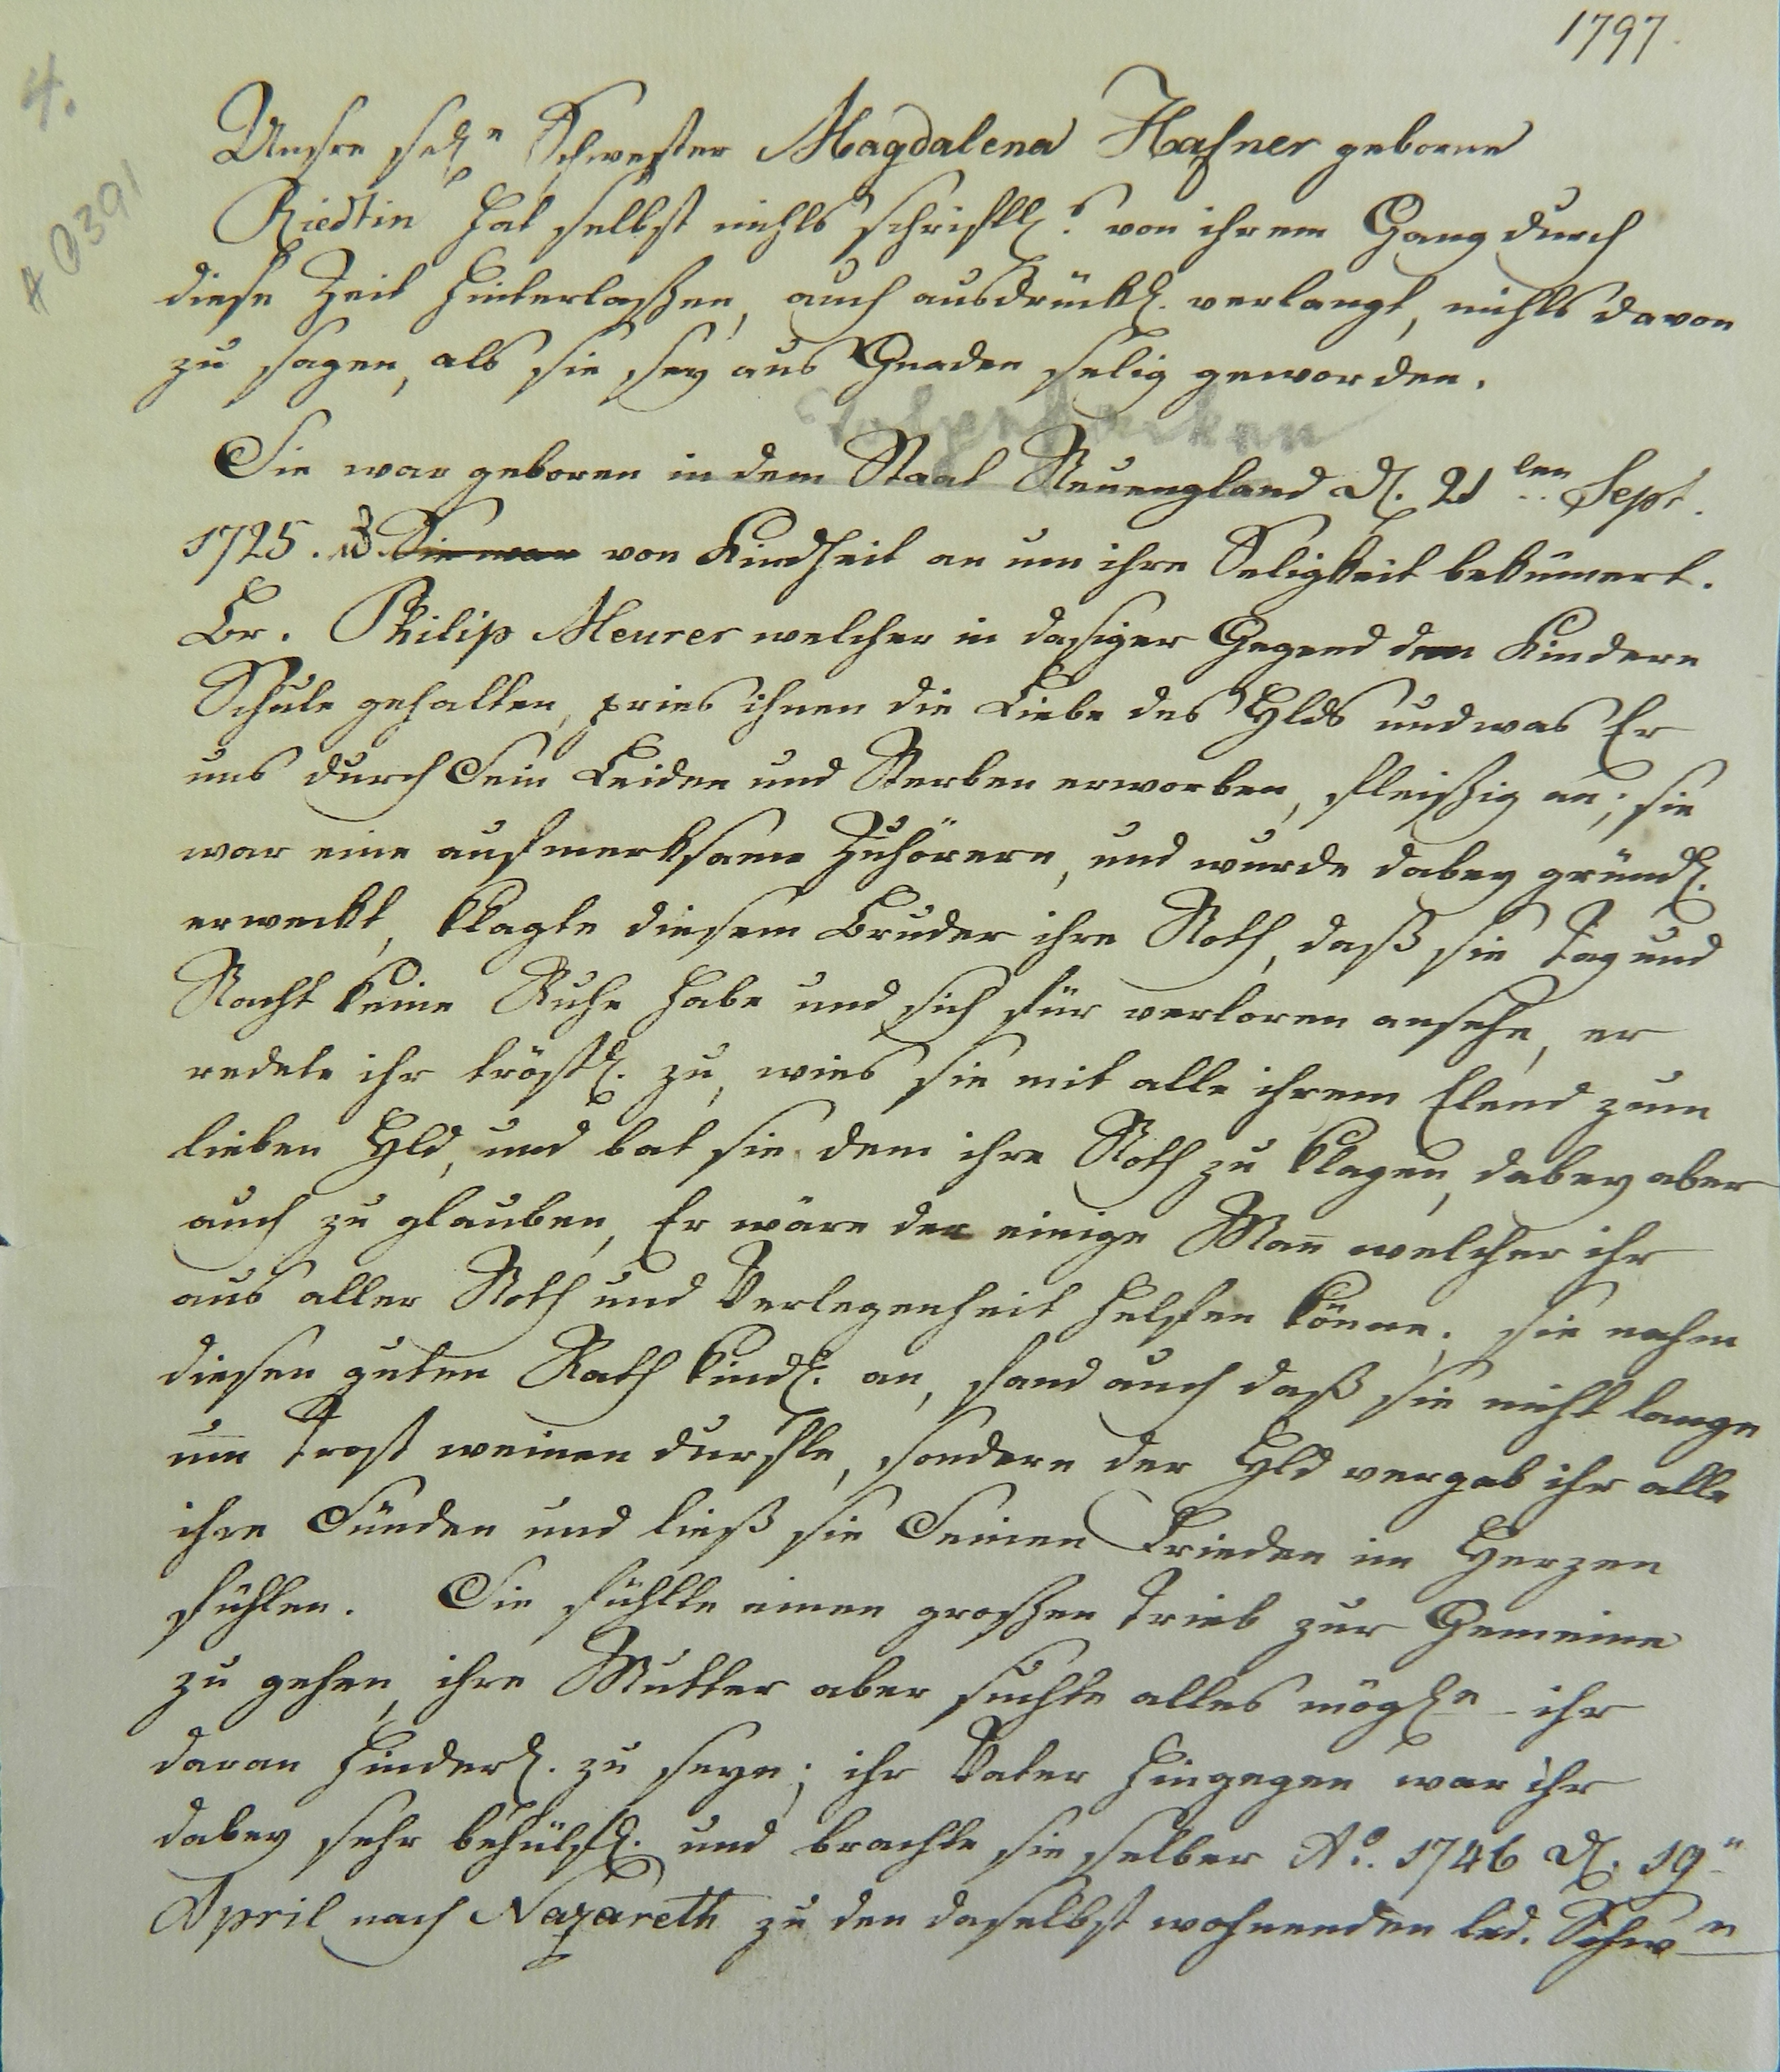 1797.
4.
# 0391
Unsre sel.n Schwester Magdalena Hafner geborne
Riedtin hat selbst nichts schriftl.s von ihrem Gang durch
diese Zeit hinterlaßen, auch ausdrückl. verlangt, nichts davon
zu sagen, als sie sey aus Gnaden selig geworden.
Tulpehocken
Sie war geboren in dem Staat Neuengland d. 21ten Sept.
1725. u. Sie war von Kindheit an um ihre Seligkeit bekümert.
Br. Philip Meurer welcher in dasiger Gegend den Kindern
Schule gehalten, pries ihnen die Liebe des Hlds und was Er
uns durch Sein Leiden und Sterben erworben, fleißig an; sie
war eine aufmerksame Zuhörern, und wurde dabey gründl.
erweckt, klagte diesem Bruder ihre Noth, daß sie Tag und
Nacht keine Ruhe habe und sich für verloren ansehe, er
redete ihr tröstl. zu, wies sie mit alle ihrem Elend zum
lieben Hld, und bat sie dem ihre Noth zu klagen, dabey aber
auch zu glauben, Er wäre der einige Man̄ welcher ihr
aus aller Noth und Verlegenheit helfen könne; sie nahm
diesen guten Rath kindl. an, fand auch daß sie nicht lange
um Trost weinen durfte, sondern der Hld vergab ihr alle
ihre Sünden und ließ sie Seinen Frieden im Herzen
fühlen. Sie fühlte einen großen Trieb zur Gemeine
zu gehen, ihre Mutter aber suchte alles mögl.e ihr
daran hinderl. zu seyn; ihr Vater hingegen war ihr
dabey sehr behülfl. und brachte sie selber Ao. 1746 d. 19n
April nach Nazareth zu den daselbst wohnenden led. Schwn